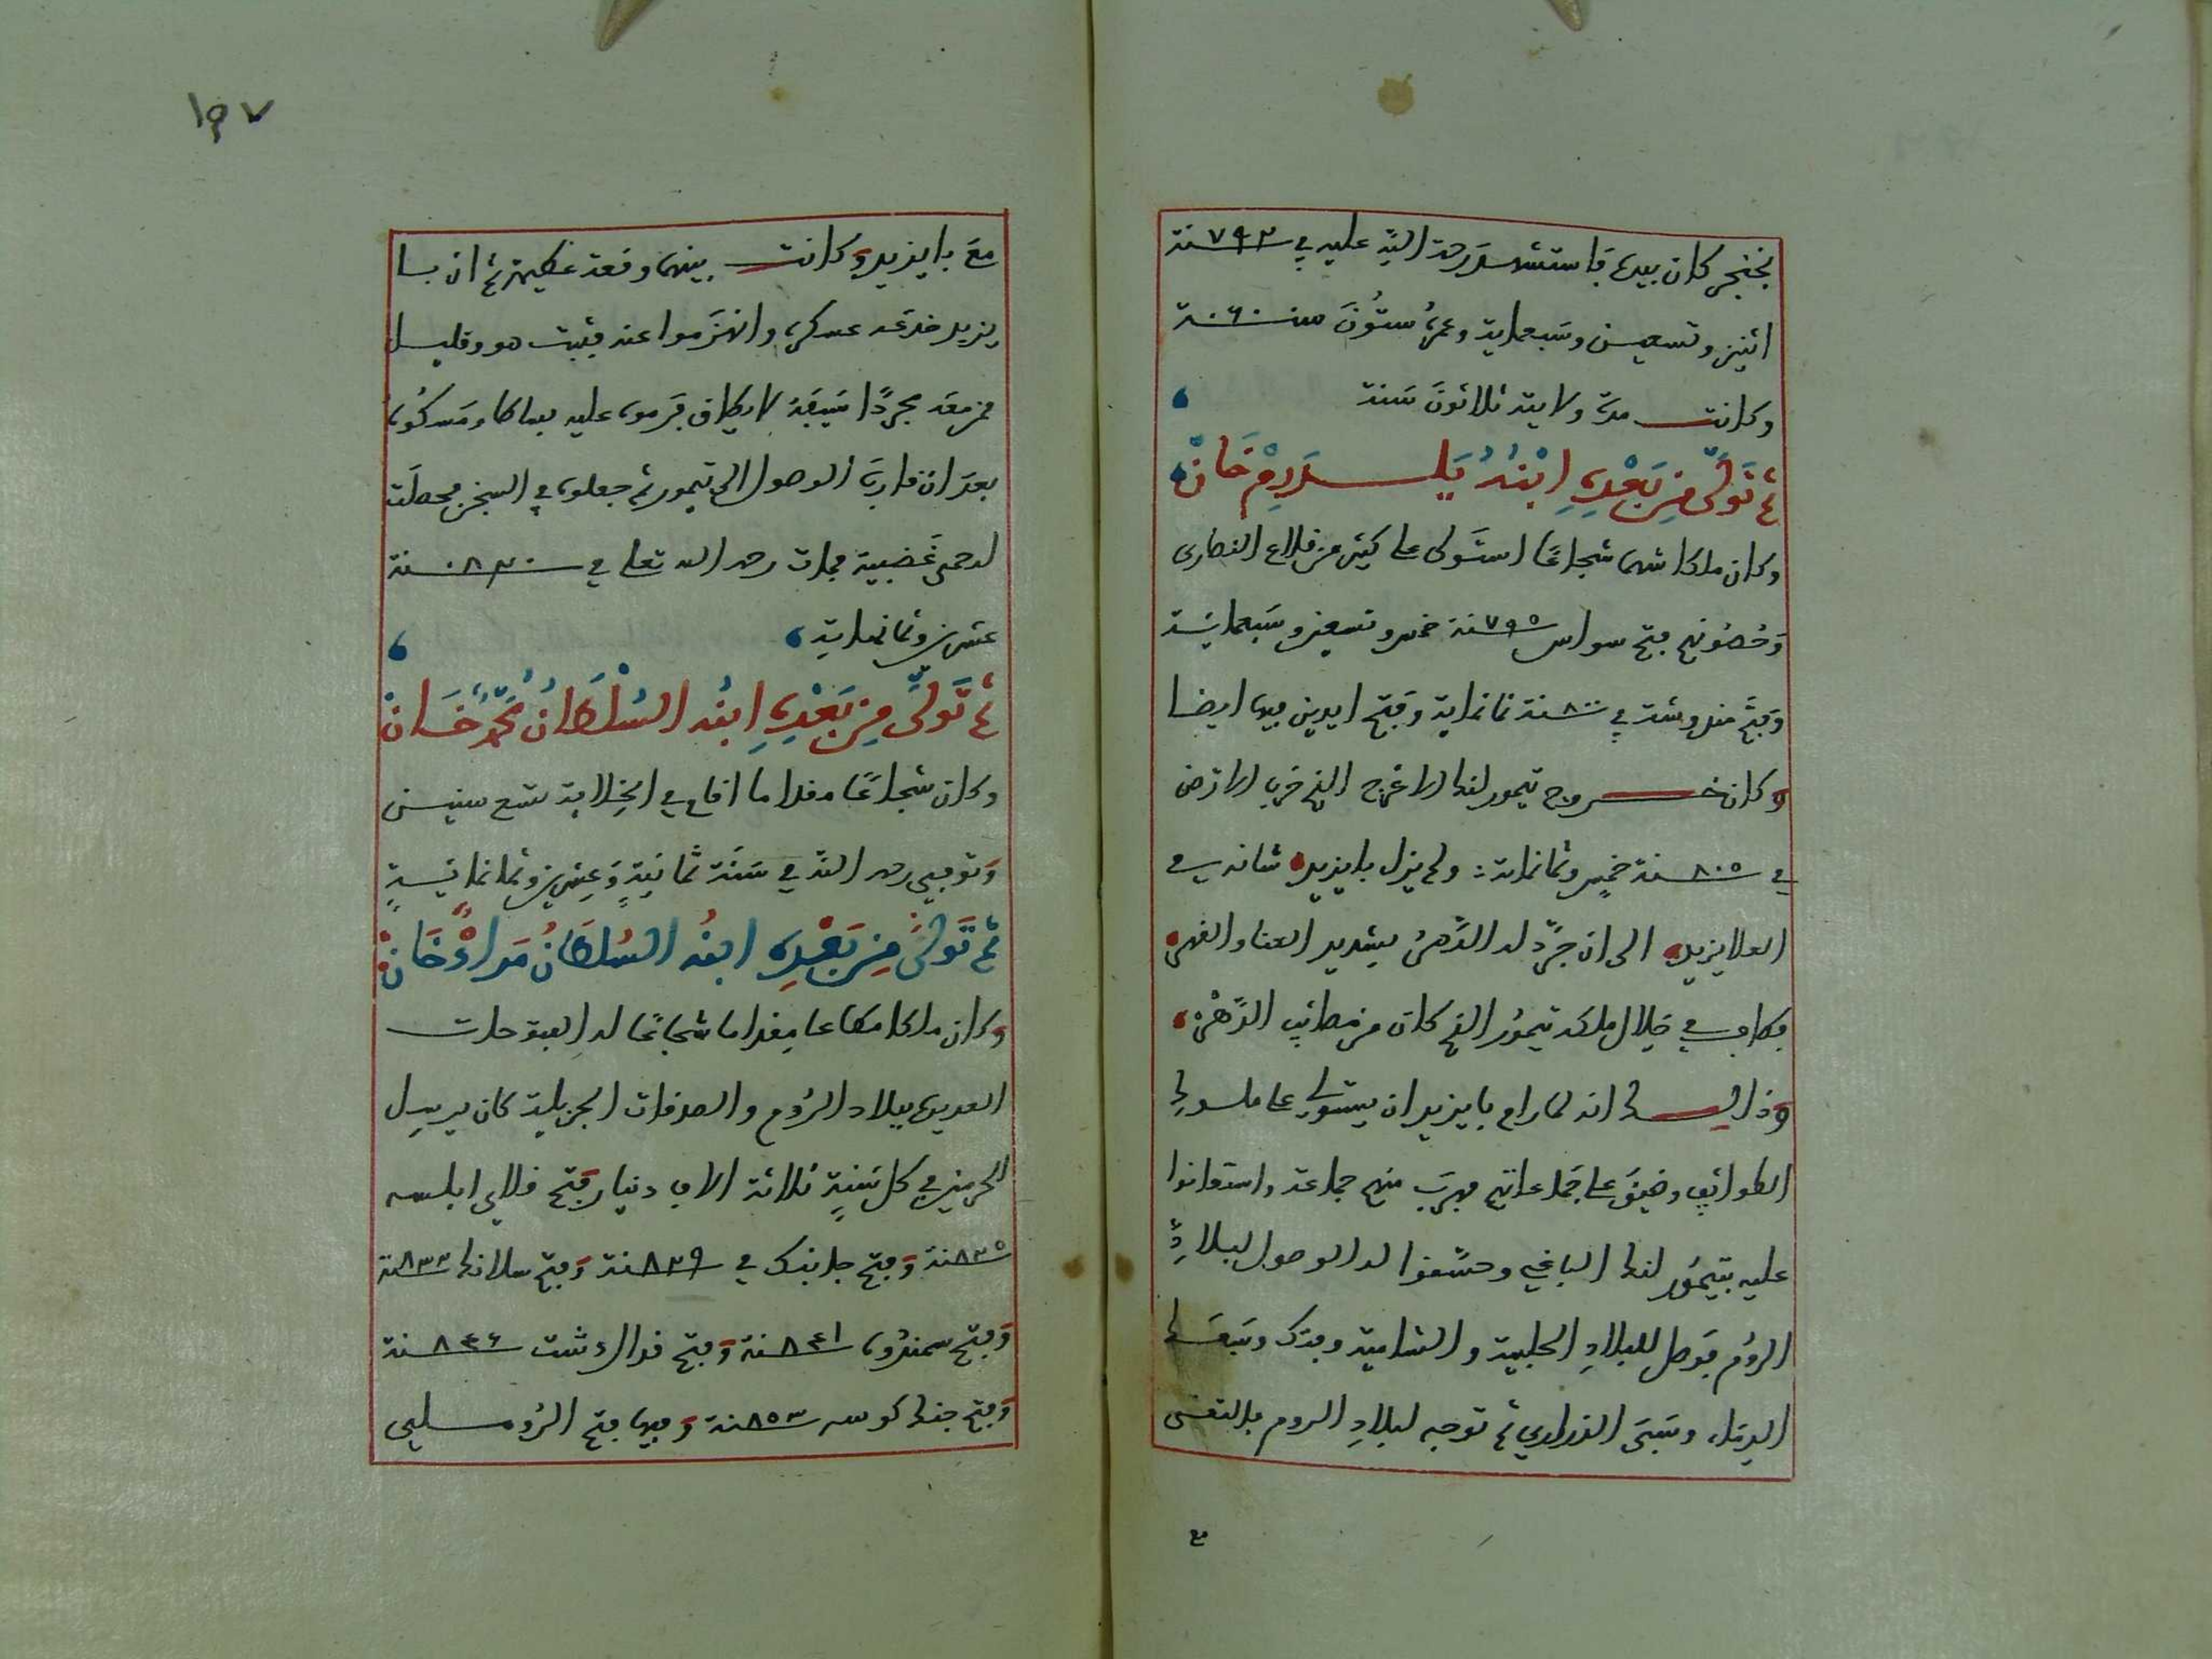 بخنجر كان بيده فاستشهد رحمة الله عليه في ٧٩٢ سنة
اثنين وتسعين وسبعماية وعمره ستون سنة ٠٦٠
وكانت مدة ولايته ثلاثون سنة
ثم تولى من بعده ابنه يلدرم خان
وكان ملكا شهما شجاعا استولى على كثير من قلاع النصارى
وحصونهم فتح سواس ٧٩٥ سنة خمس وتسعين وسبعماية
وفتح منروشة في ٨٠٠ سنة ثمانماية وفتح ايدين فيها ايضا
وكان خروج تيمور لنك الاعرج الذي خرب الارض
في ٨٠٥ سنة خمس وثمانماية ولم يزل بايزيد شانه في
العلا يزيد الى ان جرد له الدهر بشديد العنا والقهر
فطاف في خلال ملكه تيمور الذي كان من مصائب الدهر
وذلك انه لما رام بايزيد ان يستولي على ملوك
الطوائف وضيق على جماعاتهم فهرب منهم جماعة واستعانوا
عليه بتيمور لنك الباغي وحسنوا له الوصول لبلاد
الروم فوصل للبلاد الحلبية والشامية وفتك وسفك
الدماء وسبى الذراري ثم توجه لبلاد الروم بالتقى
مع
١٩٧
مع بايزيد وكانت بينهما وقعة عظيمة ثم ان با
يزيد خدعه عسكره وانهزموا عنه فثبت هو وقليل
من معه مجردا سيفه لا يطاق فرموا عليه بساطا ومسكوه
بعد ان قارب الوصول الى تيمور ثم جعلوه في السجن فحصلت
له حمى غضبية فمات رحمه الله تعالى في ٨٢٠ سنة
عشرين وثمانماية
ثم تولى من بعده ابنه السلطان محمد خان
وكان شجاعا مقداما اقام في الخلافة تسع سنين
وتوفي رحمه الله في سنة ثمانية وعشرين وثمانماية
ثم تولى من بعده ابنه السلطان مراد خان
وكان ملكا مطاعا مقداما شجاعا له الفتوحات
العديدة ببلاد الروم والصدقات الجزيلة كان يرسل
الحرمين في كل سنة ثلاثة الاف دينار وفتح ابلسه
٨٣٥ سنة وفتح جانبك في ٨٣٩ سنة وفتح سلانك ٨٣٣ سنة
وفتح سمندره ٨٤١ سنة وفتح ٨٤٦ سنة
وفتح كوسه ٨٥٣ سنة وفيها فتح الروم سليى